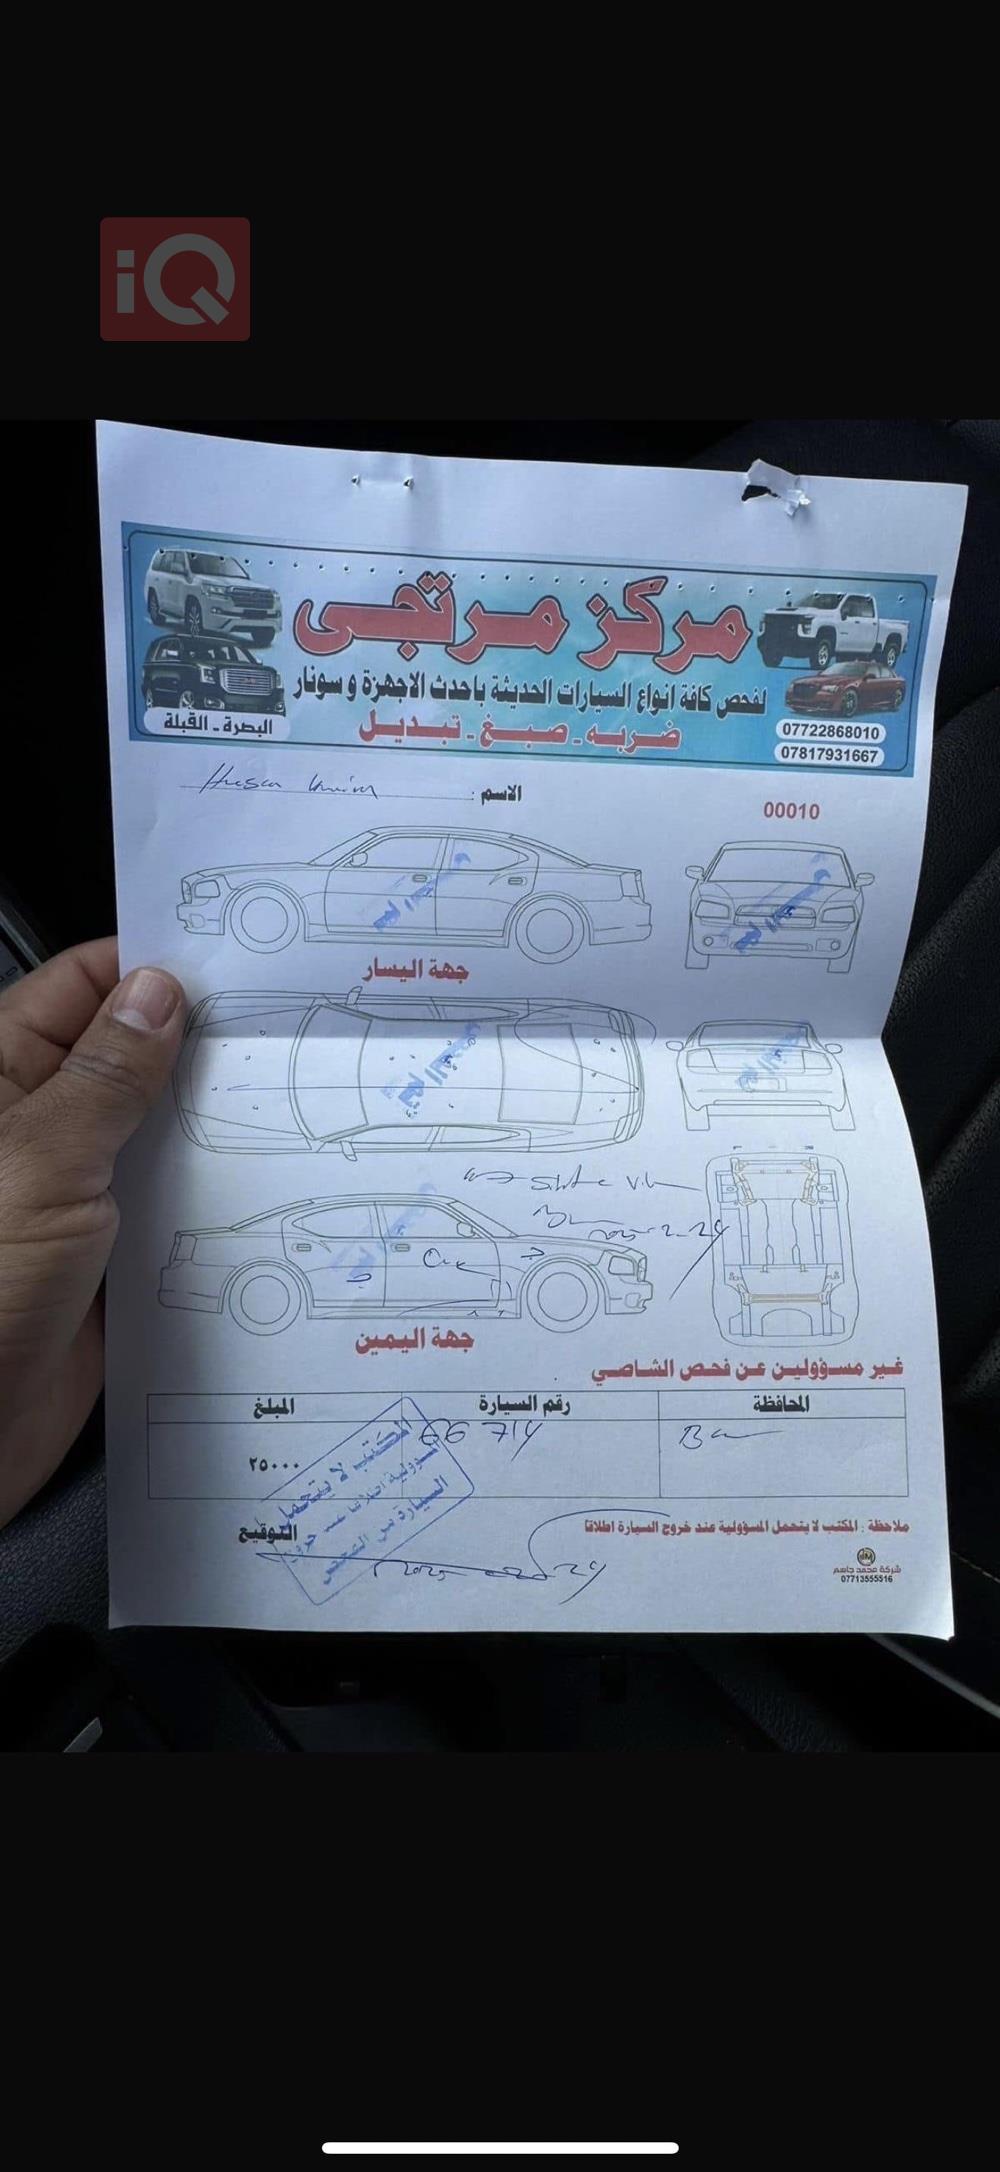 iQ
مركز مرتجى
لفحص كافة انواع السيارات الحديثة باحدث الاجهزة و سونار
ضربه - صبغ - تبديل
البصرة - القبلة
07722868010
07817931667
الاسم :
00010
جهة اليسار
جهة اليمين
غير مسؤولين عن فحص الشاصي
المحافظة
رقم السيارة
المبلغ
66 714
٢٥٠٠٠
المكتب لا يتحمل
السيارة من الفحص
ملاحظة : المكتب لا يتحمل المسؤولية عند خروج السيارة اطلاقا
التوقيع
شركة محمد جاسم
07713555516